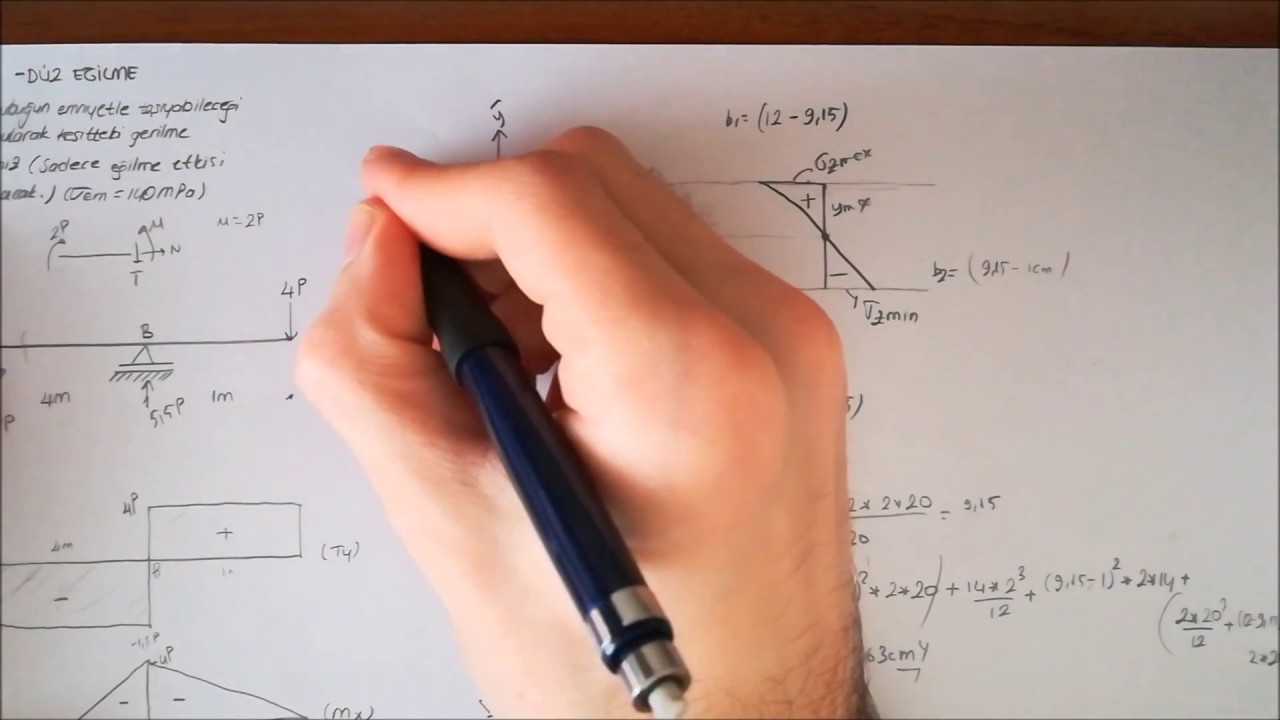 -DÜZ EĞİLME
emniyetle taşıyabileceği
olarak kesitteki gerilme
(Sadece eğilme etkisi
(σem = 140 mPa)
2P
M
N
T
M = 2P
4P
B
4m
5,5P
1m
P
4P
4m
+
(Ty)
B
-
-1,5P
4P
-
-
(Mx)
y
b₁ = (12 - 9,15)
σzmax
+
ymax
-
b₂ = (9,15 - 1cm)
σzmin
5)
2*2*20 = 9,15
20
)² * 2*20) + 14*2³/12 + (9,15-1)² * 2*14 +
(2*20³/12 +
63cm⁴